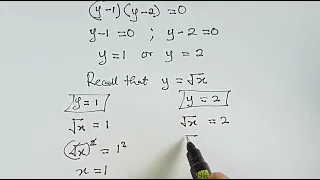 (y-1)(y-2) = 0
y-1 = 0 ; y-2 = 0
y = 1 or y = 2
Recall that y = √x
y = 1
y = 2
√x = 1
√x = 2
(√x)² = 1²
√
x = 1